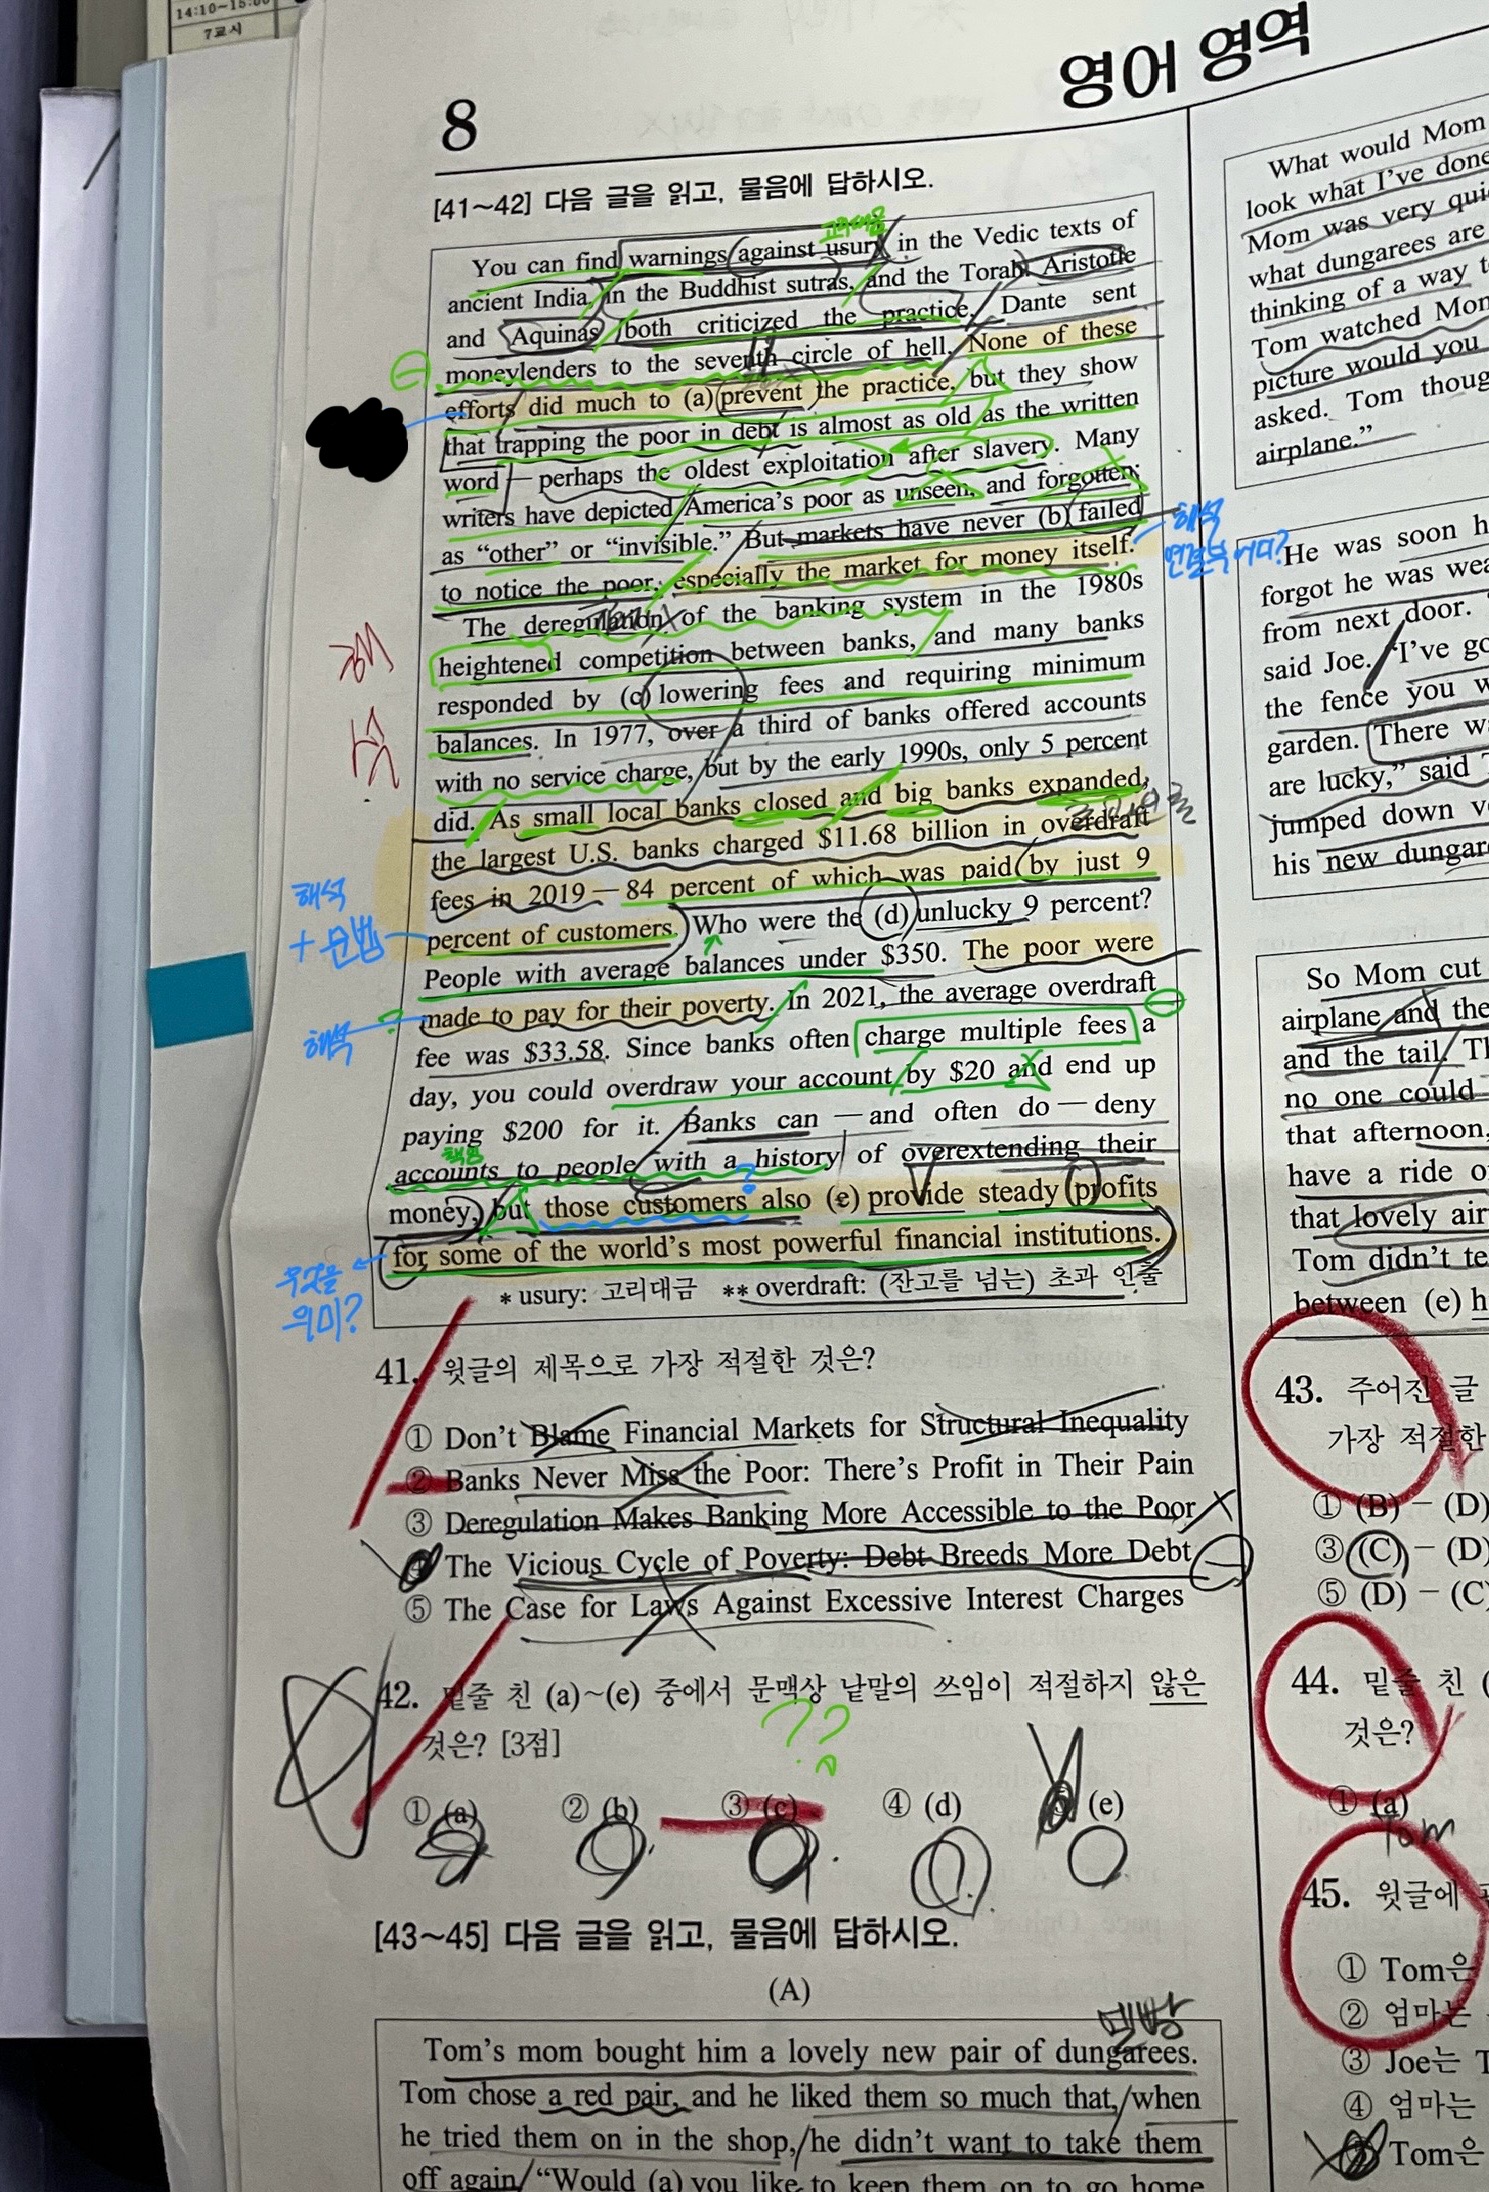 14:10~15:00
7교시
8
영어 영역
[41~42] 다음 글을 읽고, 물음에 답하시오.
고리대금
You can find warnings against usury in the Vedic texts of
ancient India, in the Buddhist sutras, and the Torah. Aristotle
and Aquinas both criticized the practice. Dante sent
moneylenders to the seventh circle of hell. None of these
efforts did much to (a) prevent the practice, but they show
that trapping the poor in debt is almost as old as the written
word — perhaps the oldest exploitation after slavery. Many
writers have depicted America's poor as unseen, and forgotten;
as “other” or “invisible.” But markets have never (b) failed
to notice the poor, especially the market for money itself.
해석
연결부 어디?
The deregulation of the banking system in the 1980s
heightened competition between banks, and many banks
responded by (c) lowering fees and requiring minimum
balances. In 1977, over a third of banks offered accounts
with no service charge, but by the early 1990s, only 5 percent
did. As small local banks closed and big banks expanded,
the largest U.S. banks charged $11.68 billion in overdraft
fees in 2019 — 84 percent of which was paid by just 9
percent of customers. Who were the (d) unlucky 9 percent?
해석
+ 문법
People with average balances under $350. The poor were
made to pay for their poverty. In 2021, the average overdraft
해석
fee was $33.58. Since banks often charge multiple fees a
day, you could overdraw your account by $20 and end up
paying $200 for it. Banks can — and often do — deny
accounts to people with a history of overextending their
money, but those customers also (e) provide steady profits
for some of the world's most powerful financial institutions.
무엇을
의미?
* usury: 고리대금 ** overdraft: (잔고를 넘는) 초과 인출
41. 윗글의 제목으로 가장 적절한 것은?
① Don't Blame Financial Markets for Structural Inequality
② Banks Never Miss the Poor: There's Profit in Their Pain
③ Deregulation Makes Banking More Accessible to the Poor
④ The Vicious Cycle of Poverty: Debt Breeds More Debt
⑤ The Case for Laws Against Excessive Interest Charges
42. 밑줄 친 (a)~(e) 중에서 문맥상 낱말의 쓰임이 적절하지 않은
것은? [3점]
??
① (a) ② (b) ③ (c) ④ (d) ⑤ (e)
[43~45] 다음 글을 읽고, 물음에 답하시오.
(A)
멜빵
Tom's mom bought him a lovely new pair of dungarees.
Tom chose a red pair, and he liked them so much that, when
he tried them on in the shop, he didn't want to take them
off again. “Would (a) you like to keep them on to go home
What would Mom
look what I've done
Mom was very
what dungarees are
thinking of a way
Tom watched Mom
picture would you
asked. Tom
airplane.”
He was soon
forgot he was
from next door.
said Joe. “I've
the fence you
garden. There
are lucky,” said
jumped down
his new
So Mom cut
airplane and the
and the tail.
no one could
that afternoon,
have a ride
that lovely
Tom didn't
between (e)
43. 주어진 글
가장 적절한
① (B) – (D)
③ (C) – (D)
⑤ (D) – (C)
44. 밑줄 친
것은?
① (a)
Tom
45. 윗글에
① Tom은
② 엄마는
③ Joe는
④ 엄마는
⑤ Tom은